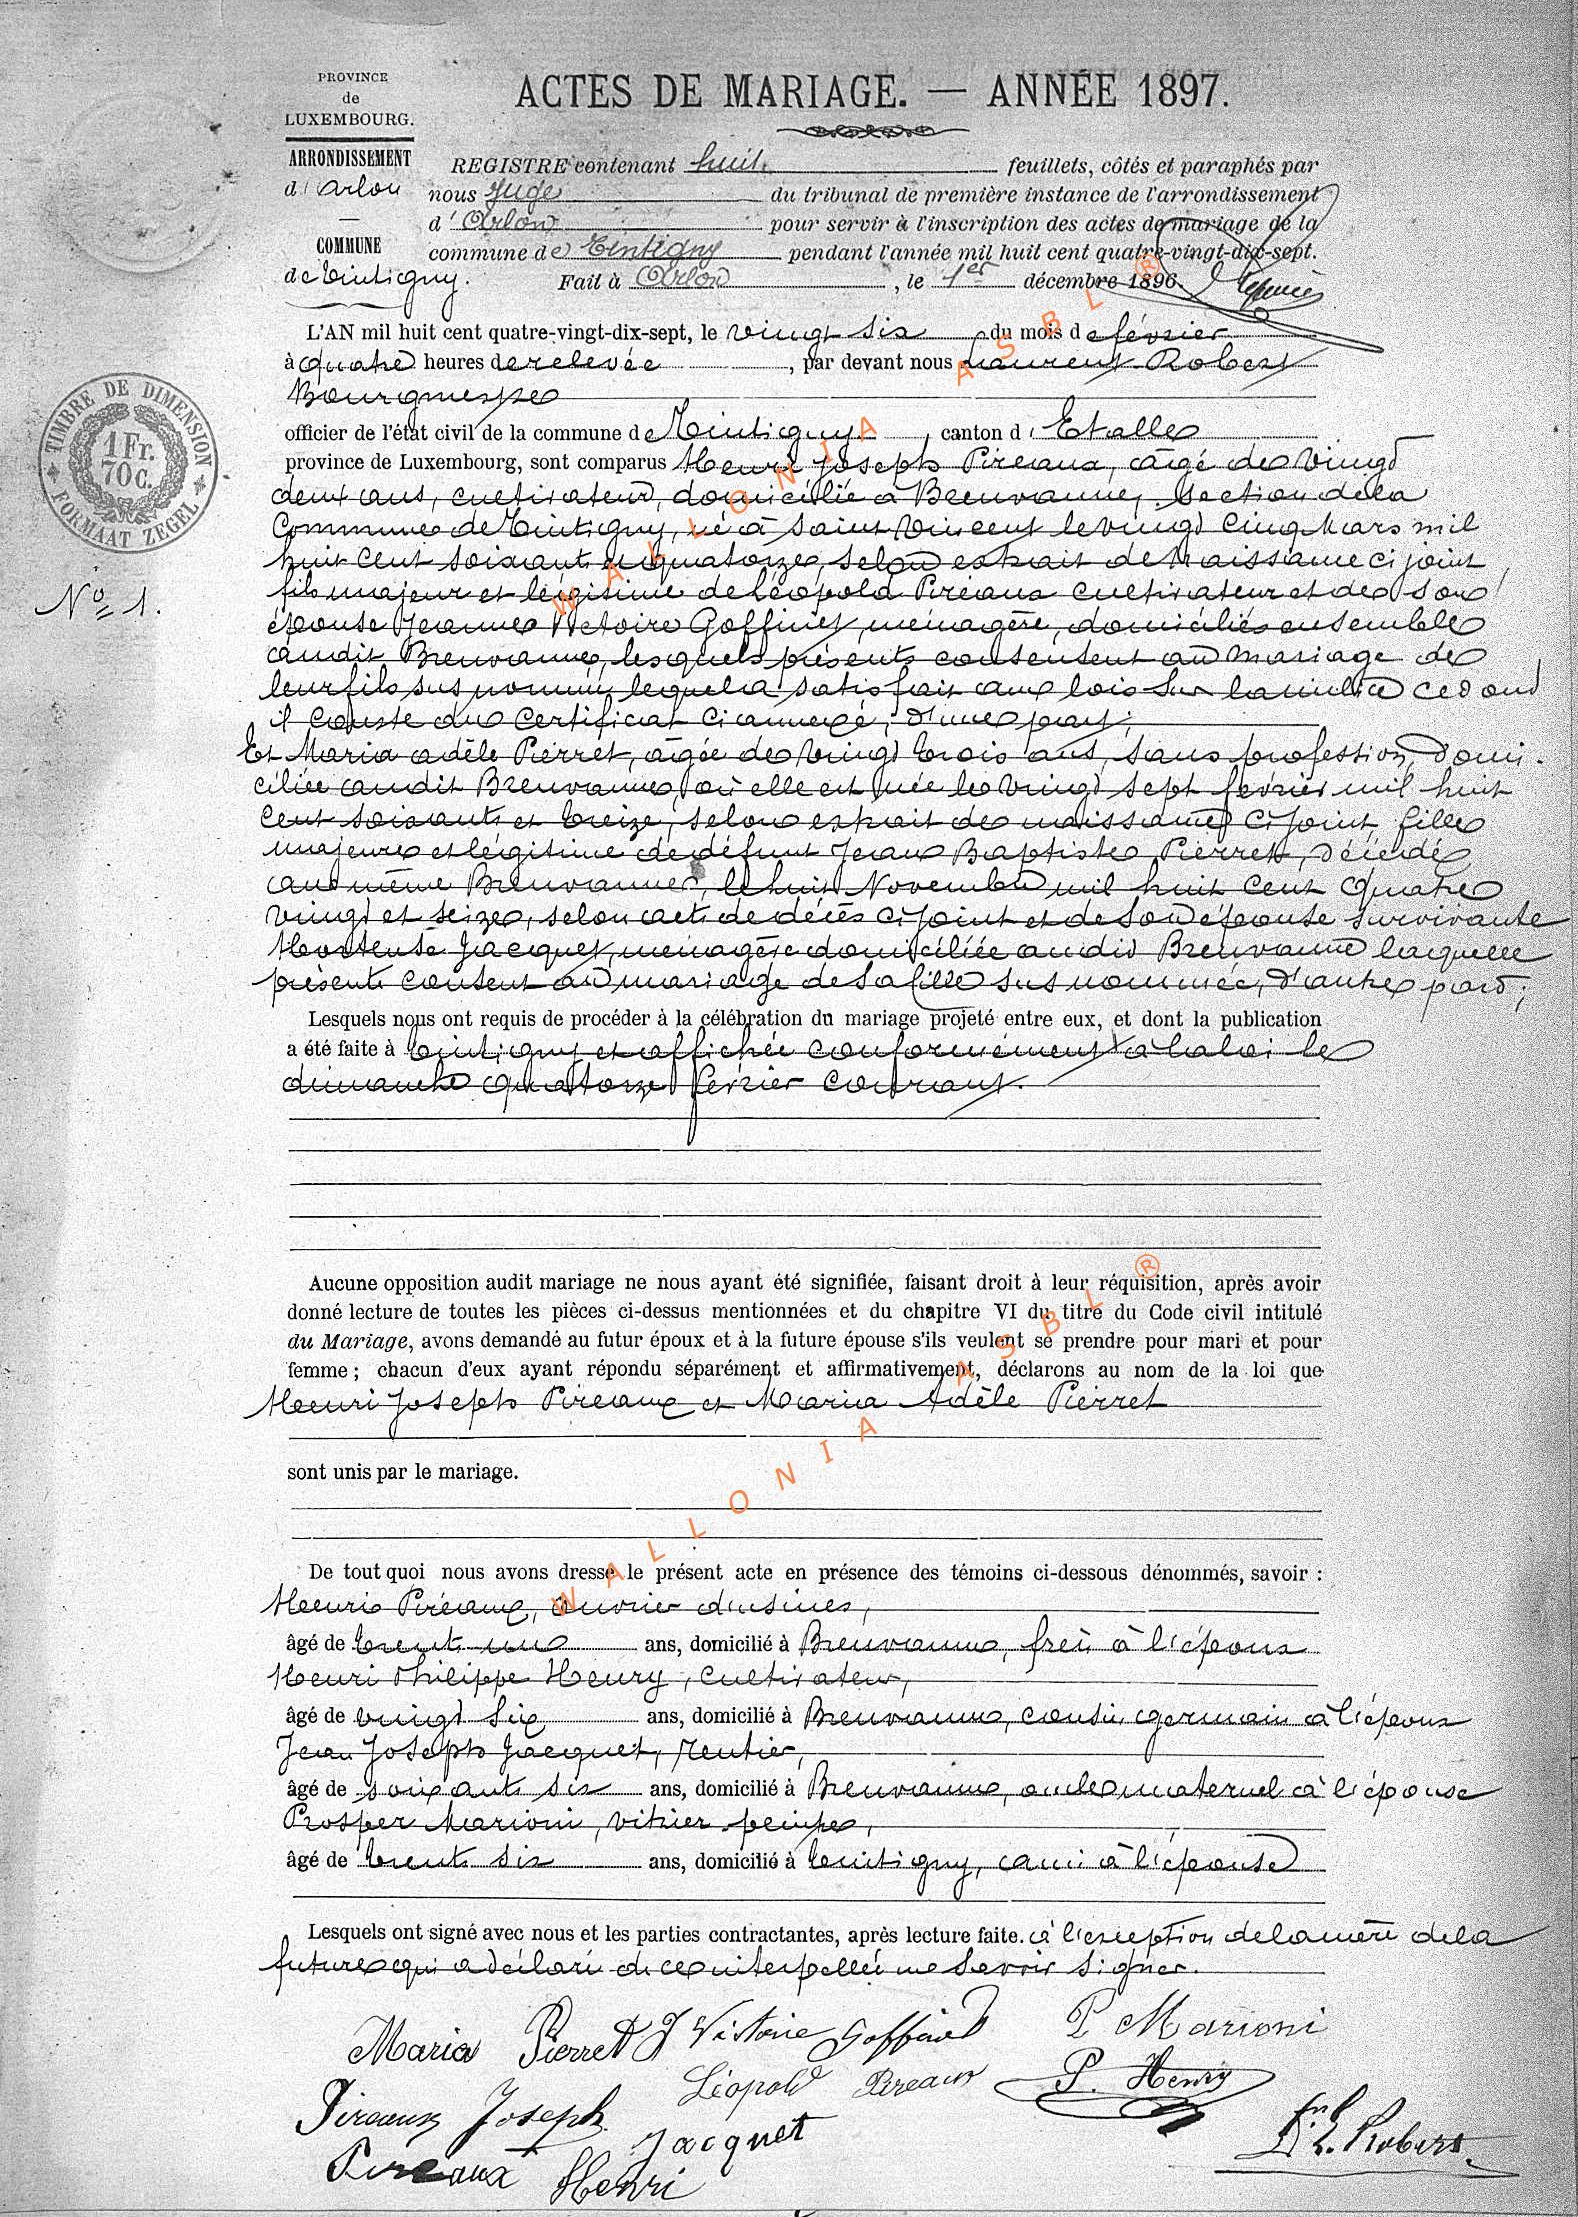 PROVINCE
de
LUXEMBOURG.
ARRONDISSEMENT
d'Arlon
COMMUNE
de Tintigny.
ACTES DE MARIAGE. — ANNÉE 1897.
REGISTRE contenant huit feuillets, côtés et paraphés par
nous Juge du tribunal de première instance de l'arrondissement
d'Arlon pour servir à l'inscription des actes de mariage de la
commune de Tintigny pendant l'année mil huit cent quatre-vingt-dix-sept.
Fait à Arlon, le 1er décembre 1896.
TIMBRE DE DIMENSION
1 Fr.
70 c.
FORMAAT ZEGEL
No 1.
L'AN mil huit cent quatre-vingt-dix-sept, le vingt six du mois de février
à quatre heures de relevée, par devant nous Laurent Robert
Bourgmestre
officier de l'état civil de la commune de Tintigny, canton d'Etalle
province de Luxembourg, sont comparus Henri Joseph Pireaux, âgé de vingt
deux ans, cultivateur, domicilié à Breuvanne, section de la
Commune de Tintigny, né à Saint Vincent le vingt cinq Mars mil
huit cent soixante et quatorze, selon extrait de Naissance ci joint,
fils majeur et légitime de Léopold Piréaux cultivateur et de son
épouse Jeanne Victoire Goffinet, ménagère, domiciliés ensemble
audit Breuvanne, lesquels présents consentent au mariage de
leur fils sus nommé, lequel a satisfait aux lois sur la milice ce dont
il conste du certificat ci annexé, d'une part;
Et Maria adèle Pierret, âgée de vingt trois ans, sans profession, domi-
ciliée audit Breuvanne, où elle est née le vingt sept février mil huit
cent soixante et treize, selon extrait de naissance ci joint, fille
majeure et légitime de défunt Jean Baptiste Pierret, décédé
au même Breuvanne, le huit Novembre mil huit cent quatre
vingt et seize, selon acte de décès ci joint et de son épouse survivante
Hortense Jacquet, ménagère domiciliée audit Breuvanne laquelle
présente consent au mariage de sa fille sus nommée, d'autre part;
Lesquels nous ont requis de procéder à la célébration du mariage projeté entre eux, et dont la publication
a été faite à Tintigny et affichée conformément à la loi le
dimanche quatorze février courant.
Aucune opposition audit mariage ne nous ayant été signifiée, faisant droit à leur réquisition, après avoir
donné lecture de toutes les pièces ci-dessus mentionnées et du chapitre VI du titre du Code civil intitulé
du Mariage, avons demandé au futur époux et à la future épouse s'ils veulent se prendre pour mari et pour
femme ; chacun d'eux ayant répondu séparément et affirmativement, déclarons au nom de la loi que
Henri Joseph Pireaux et Maria Adèle Pierret
sont unis par le mariage.
De tout quoi nous avons dressé le présent acte en présence des témoins ci-dessous dénommés, savoir :
Henri Piréaux, ouvrier d'usines,
âgé de trente un ans, domicilié à Breuvanne, frère à l'époux
Henri Philippe Henry, cultivateur,
âgé de vingt six ans, domicilié à Breuvanne, cousin germain à l'époux
Jean Joseph Jacquet, rentier,
âgé de soixante six ans, domicilié à Breuvanne, oncle maternel à l'épouse
Prosper Marioni, vitrier peintre,
âgé de trente six ans, domicilié à Tintigny, ami à l'épouse
Lesquels ont signé avec nous et les parties contractantes, après lecture faite. à l'exception de la mère de la
future qui a déclaré de ce interpellée ne savoir signer.
Maria Pierret J Victoire Goffinet P Marioni
Léopold Pireaux P. Henry
Pireaux Joseph Jacquet L. Robert
Pireaux Henri
WALLONIA ASBL ®
WALLONIA ASBL ®